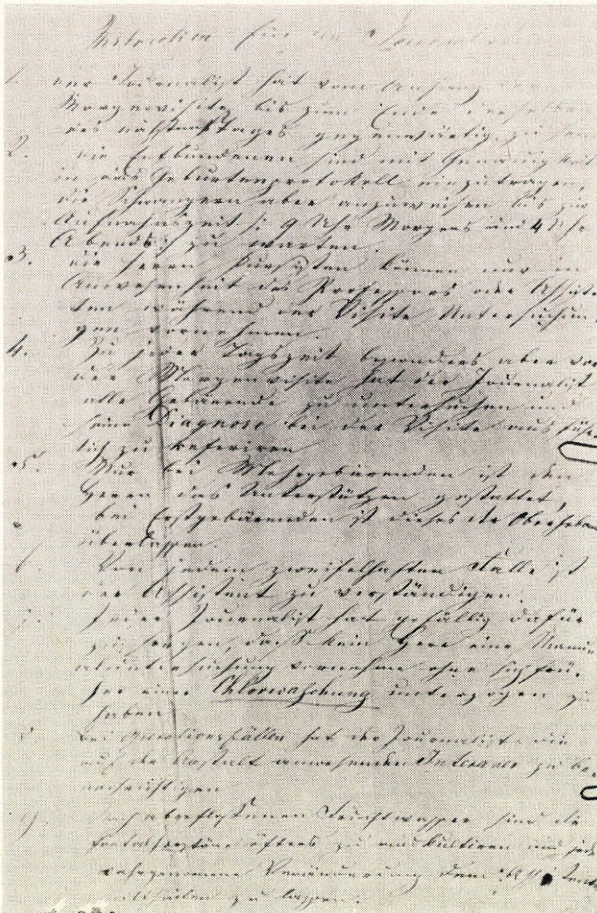 Instruction für den Journalisten
1. Der Journalist hat vom Anfang der
Morgenvisite bis zum Ende derselben
des nächsten Tages gegenwärtig zu sein
2. Die Entbundenen sind mit Genauigkeit
in das Geburtenprotokoll einzutragen,
die Schwangern aber anzuweisen bis zur
Aufnahmszeit |: 9 Uhr Morgens und 4 Uhr
Abends :| zu warten.
3. Die Herrn können nur in
Anwesenheit des Professors oder Assisten
ten während der Visite Untersuchun
gen vornehmen.
4. Zu jeder Tageszeit besonders aber vor
der Morgenvisite hat der Journalist
alle Gebärende zu untersuchen und
seine Diagnose bei der Visite ausführ
lich zu referiren
5. Nur bei Mehrgebärenden ist den
Herren das Unterstützen gestattet,
bei Erstgebärenden ist dieses der Oberhebamme
überlassen.
6. Von jedem zweifelhaften Falle ist
der Assistent zu verständigen.
7. Jeder Journalist hat gefällig dafür
zu sorgen, daß kein Herr eine Manu
aluntersuchung vornehme ohne sich frü
her einer Chlorwaschung unterzogen zu
haben
8. Bei Operationsfällen hat der Journalist die
auf der Anstalt anwesenden zu be
nachrichtigen
9. Nach abgeflossenem Fruchtwasser sind die
Foetalherztöne öfters zu auskultiren und jede
wahrgenommene Veränderung dem Assistenten
mittheilen zu lassen.